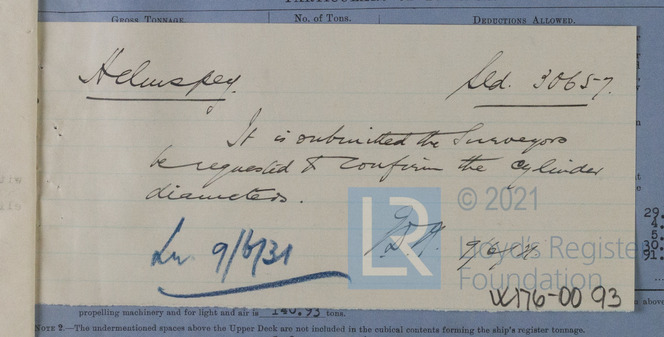 GROSS TONNAGE.
No. of Tons.
DEDUCTIONS ALLOWED.
Helmspey. Sld. 30657.
It is submitted the Surveyors
be requested to confirm the cylinder
diameters.
Lr. 9/6/31
9/6/31
LR
© 2021
Lloyd's Register
Foundation
W176-0093
29.
4.
5.
30.
91.
propelling machinery and for light and air is 140.93 tons.
NOTE 2.—The undermentioned spaces above the Upper Deck are not included in the cubical contents forming the ship's register tonnage.